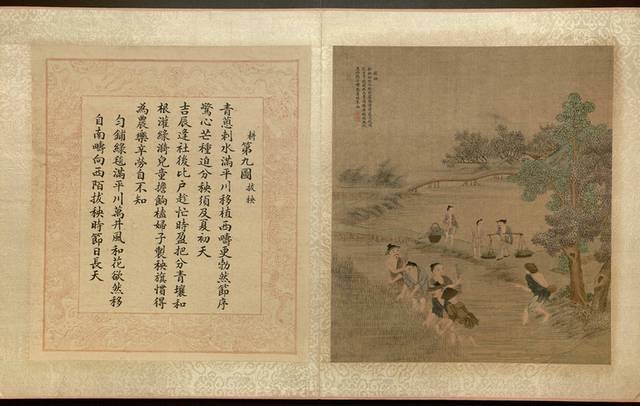 耕 第九圖 拔秧
青蔥刺水滿平川移植西疇更勃然節序
驚心芒種迫分秧須及夏初天
吉辰逢社後比户趂忙時盈把分青壤和
根灌綠漪兒童擔餉榼婦子製秧旗慣得
為農樂辛勞自不知
勻鋪綠毯滿平川萬井風和花欲然移
自南疇向西陌拔秧時節日長天
拔秧